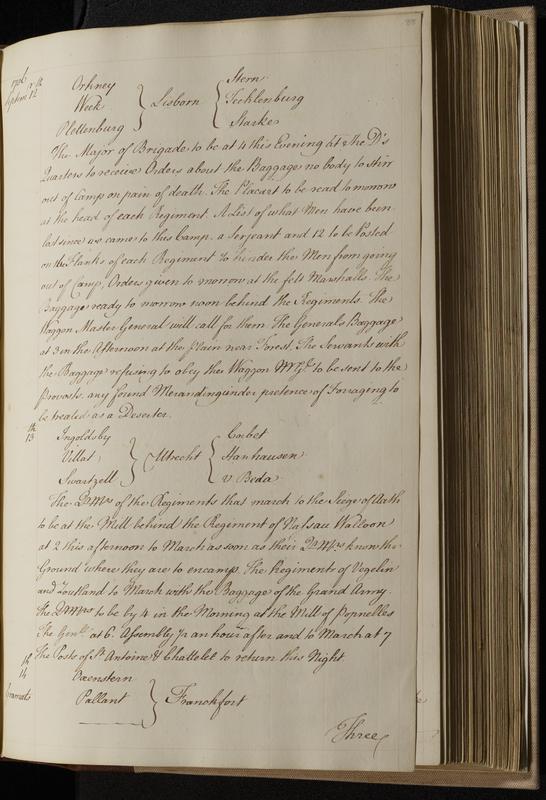 88
Orkney
Week } Lisborn { Stern
Tecklenburg
Plettenburg Starke
12
The Major of Brigade to be at 4 this Evening at the D's
Quarters to receive Orders about the Baggage no body to stirr
out of Camp on pain of death. The Placart to be read to morrow
at the head of each Regiment. A List of what Men have been
lost since we came to this Camp. a Serjeant and 12 to be Posted
on the Flanks of each Regiment to hinder the Men from going
out of Camp, Orders given to morrow at the felt Marshalls. The
Baggage ready to morrow noon behind the Regiments. The
Waggon Master General will call for them The Generals Baggage
at 3 in the Afternoon at the plain near Forest. The Servants with
the Baggage refusing to obey the Waggon to be sent to the
Provosts. any found Merauding under pretence of Forraging to
be treated as a Deserter.
13th Ingoldsby
Villat } Utrecht { Corbet
Stanhausen
Swartzell v Beda
The QrMrs of the Regiments that march to the Siege of Aath
to be at the Mill behind the Regiment of Nassau Walloon
at 2 this afternoon to March as soon as their QrMrs know the
Ground where they are to encamp. The Regiments of Vegelin
and Zoutland to March with the Baggage of the Grand Army.
the QrMrs to be by 4 in the Morning at the Mill of Popuelles
The Genll at 6. Assembly ½ an hour after and to March at 7
The Posts of St Antoine & Challelet to return this Night
14
Oxenstern
Pallant } Franckfort
Three